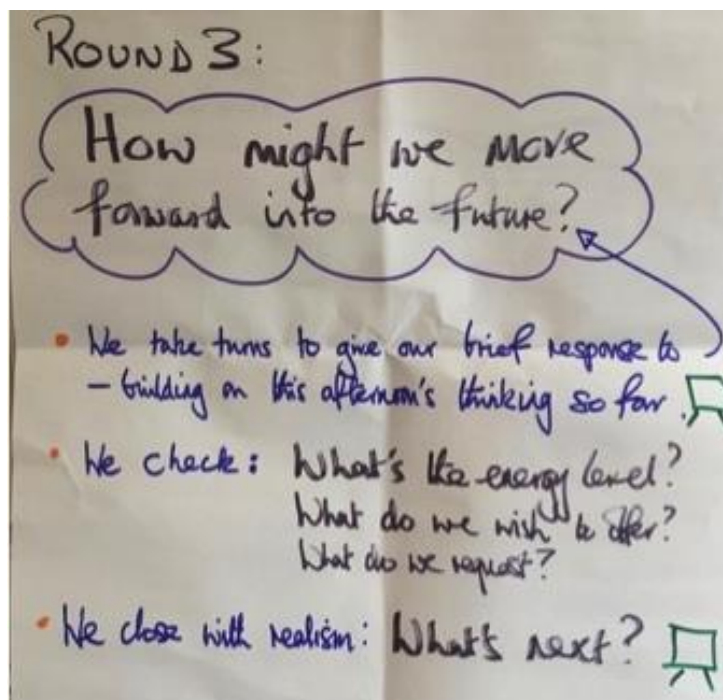 ROUND 3:
How might we move
forward into the future?
• We take turns to give our brief response to
– building on this afternoon's thinking so far.
• We check: What's the energy level?
What do we wish to offer?
What do we request?
• We close with realism: What's next?